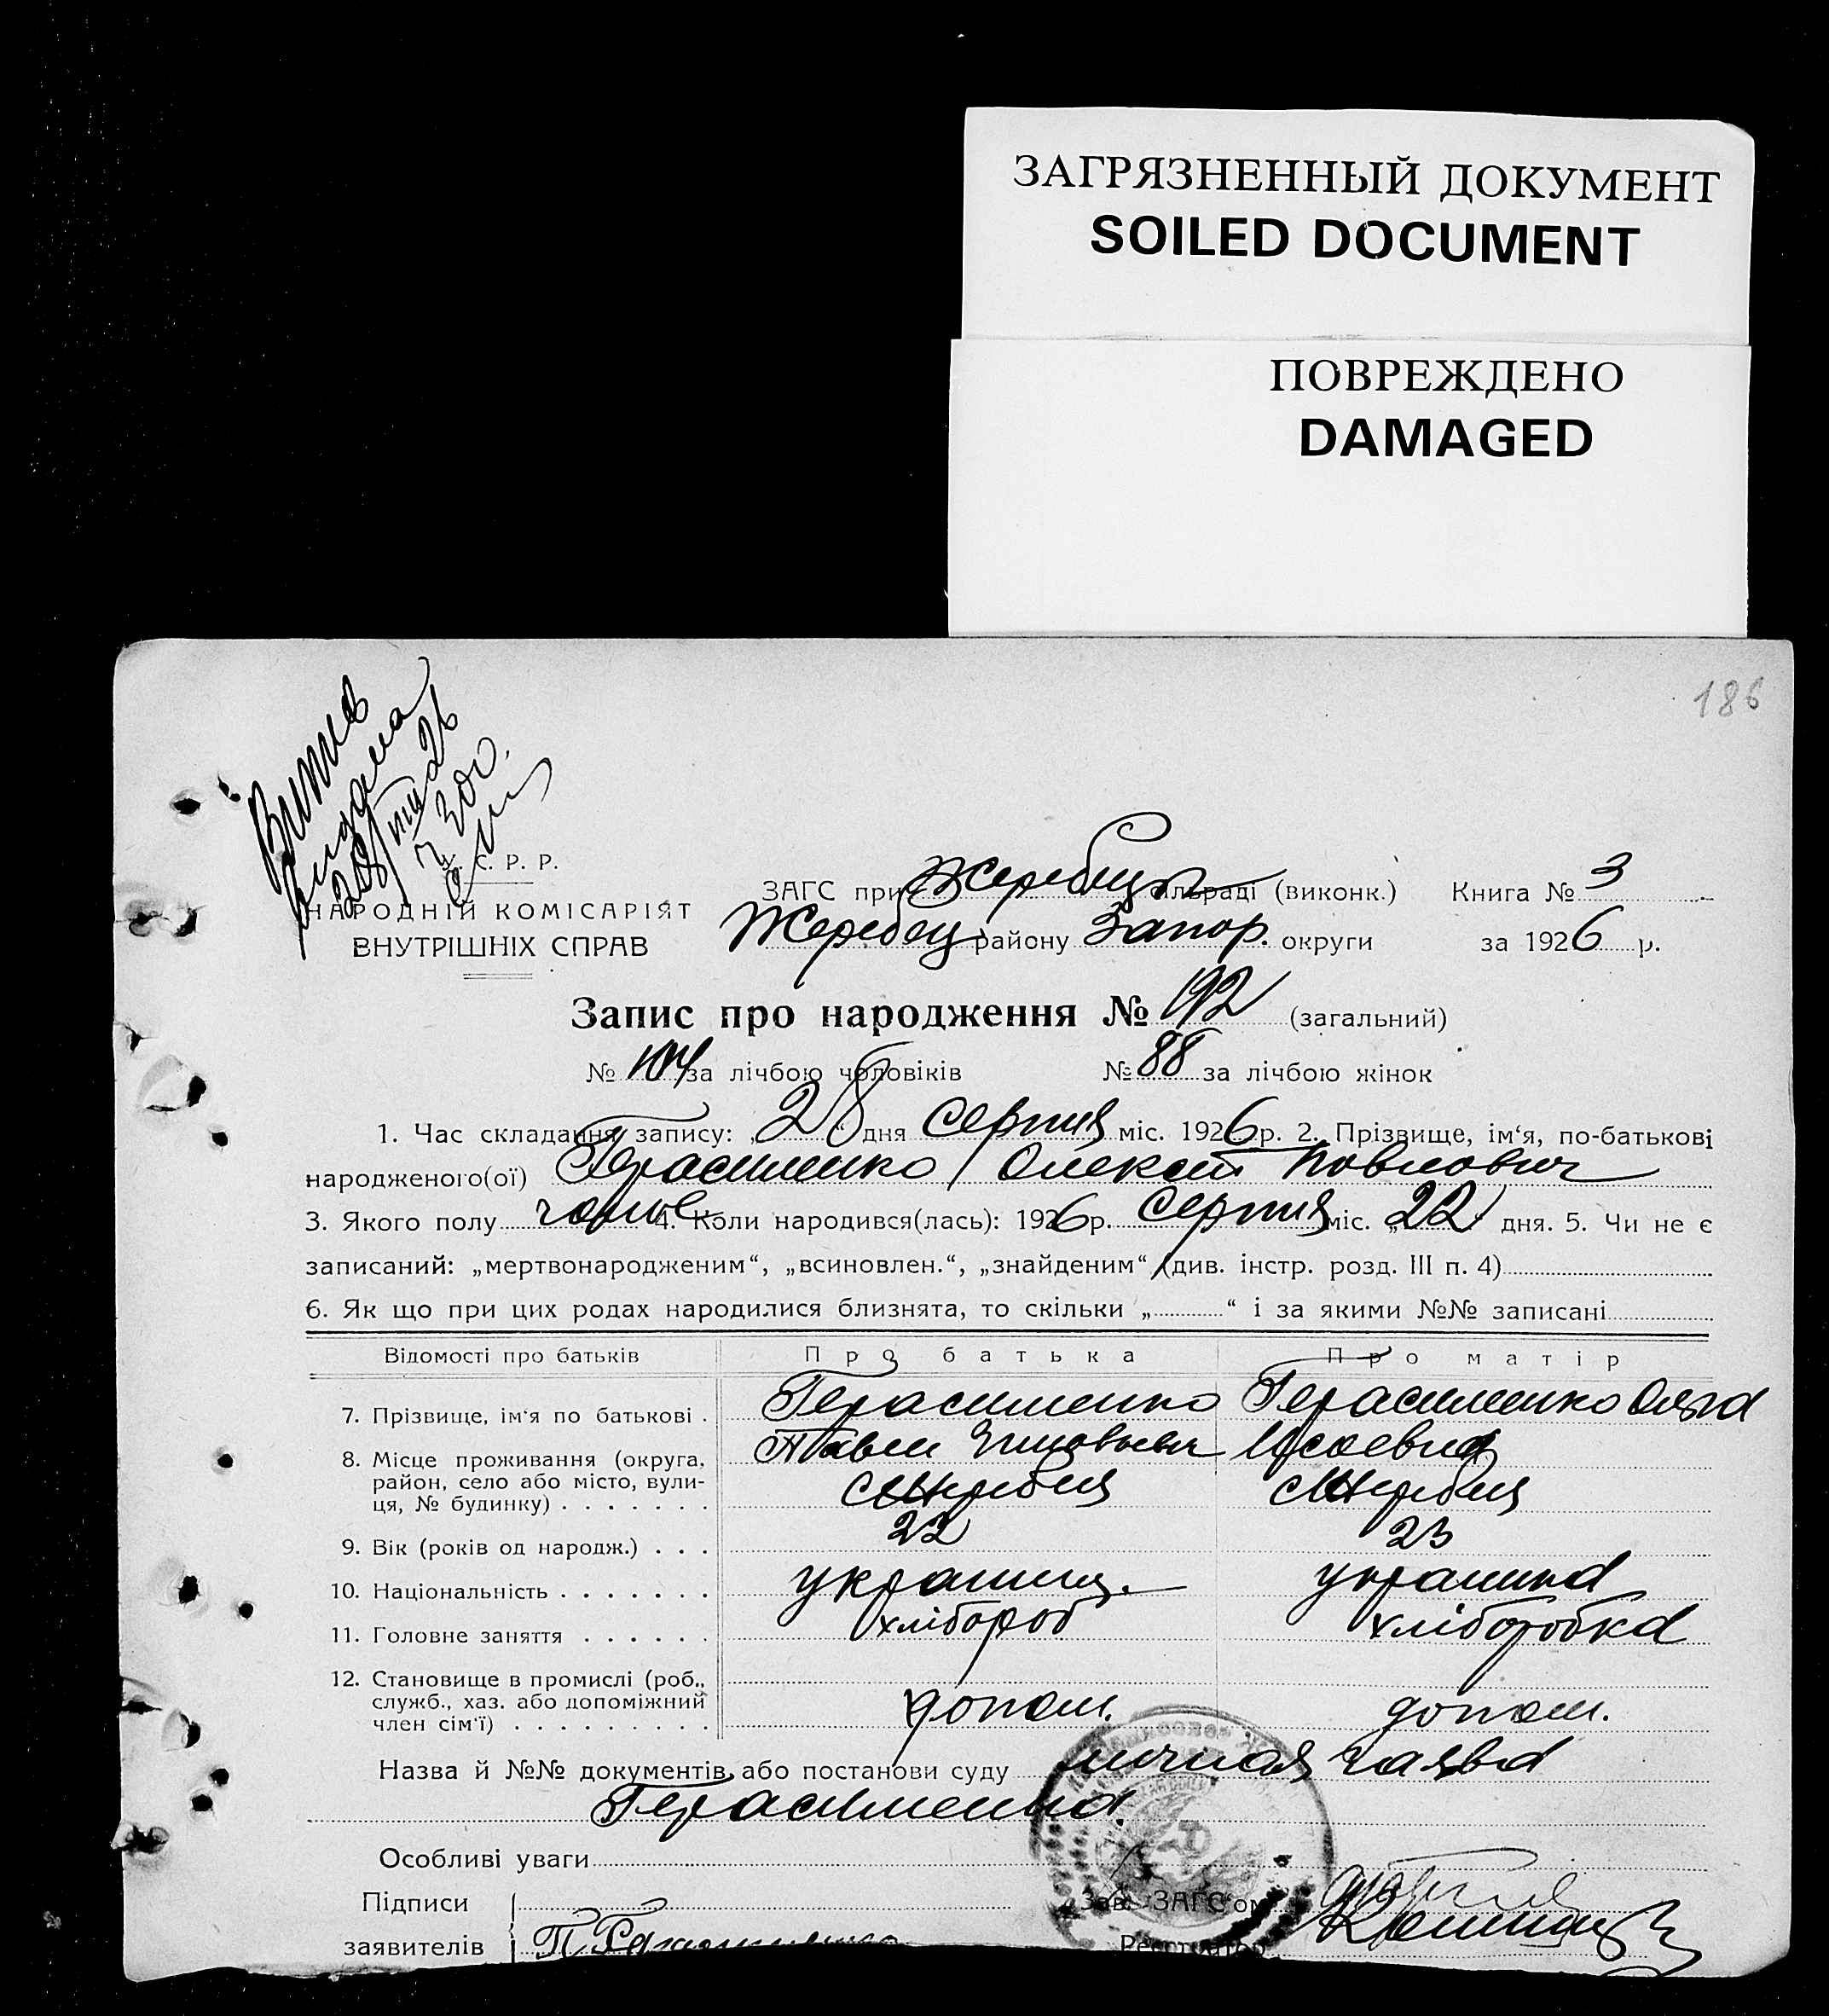 ЗАГРЯЗНЕННЫЙ ДОКУМЕНТ
SOILED DOCUMENT
ПОВРЕЖДЕНО
DAMAGED
186
Витяг
видана
28/VIII 26
У. С. Р. Р.
НАРОДНІЙ КОМІСАРІЯТ
ВНУТРІШНІХ СПРАВ
ЗАГС при Жеребец сільраді (виконк.) Книга № 3
Жеребец району Запор. округи за 1926 р.
Запис про народження № 192 (загальний)
№ 104 за лічбою чоловіків № 88 за лічбою жінок
1. Час складання запису: „28“ дня серпня міс. 1926 р. 2. Прізвище, ім‘я, по-батькові
народженого(ої) Герасименко Олексій Павлович
3. Якого полу чолов. 4. Коли народився(лась): 1926 р. серпня міс. „22“ дня. 5. Чи не є
записаний: „мертвонародженим“, „всиновлен.“, „знайденим“ (див. інстр. розд. III п. 4)
6. Як що при цих родах народилися близнята, то скільки „ “ і за якими №№ записані
Відомості про батьків Про батька Про матір
7. Прізвище, ім‘я по батькові . Герасименко Герасименко Ольга
Павел Исаевна
8. Місце проживання (округа, район, село або місто, вули-ця, № будинку) . . . . . . . с Жеребец с Жеребец
9. Вік (років од народж.) . . . 22 23
10. Національність . . . . . . . украинец. украинка
11. Головне заняття . . . . . . хлібороб хліборобка
12. Становище в промислі (роб., служб., хаз. або допоміжний член сім‘ї) . . . . . . . . . допом. допом.
Назва й №№ документів або постанови суду личная заява
Герасименка
Особливі уваги
Підписи
Зав. ЗАГС‘ом
заявителів П Герасименко Реєстратор